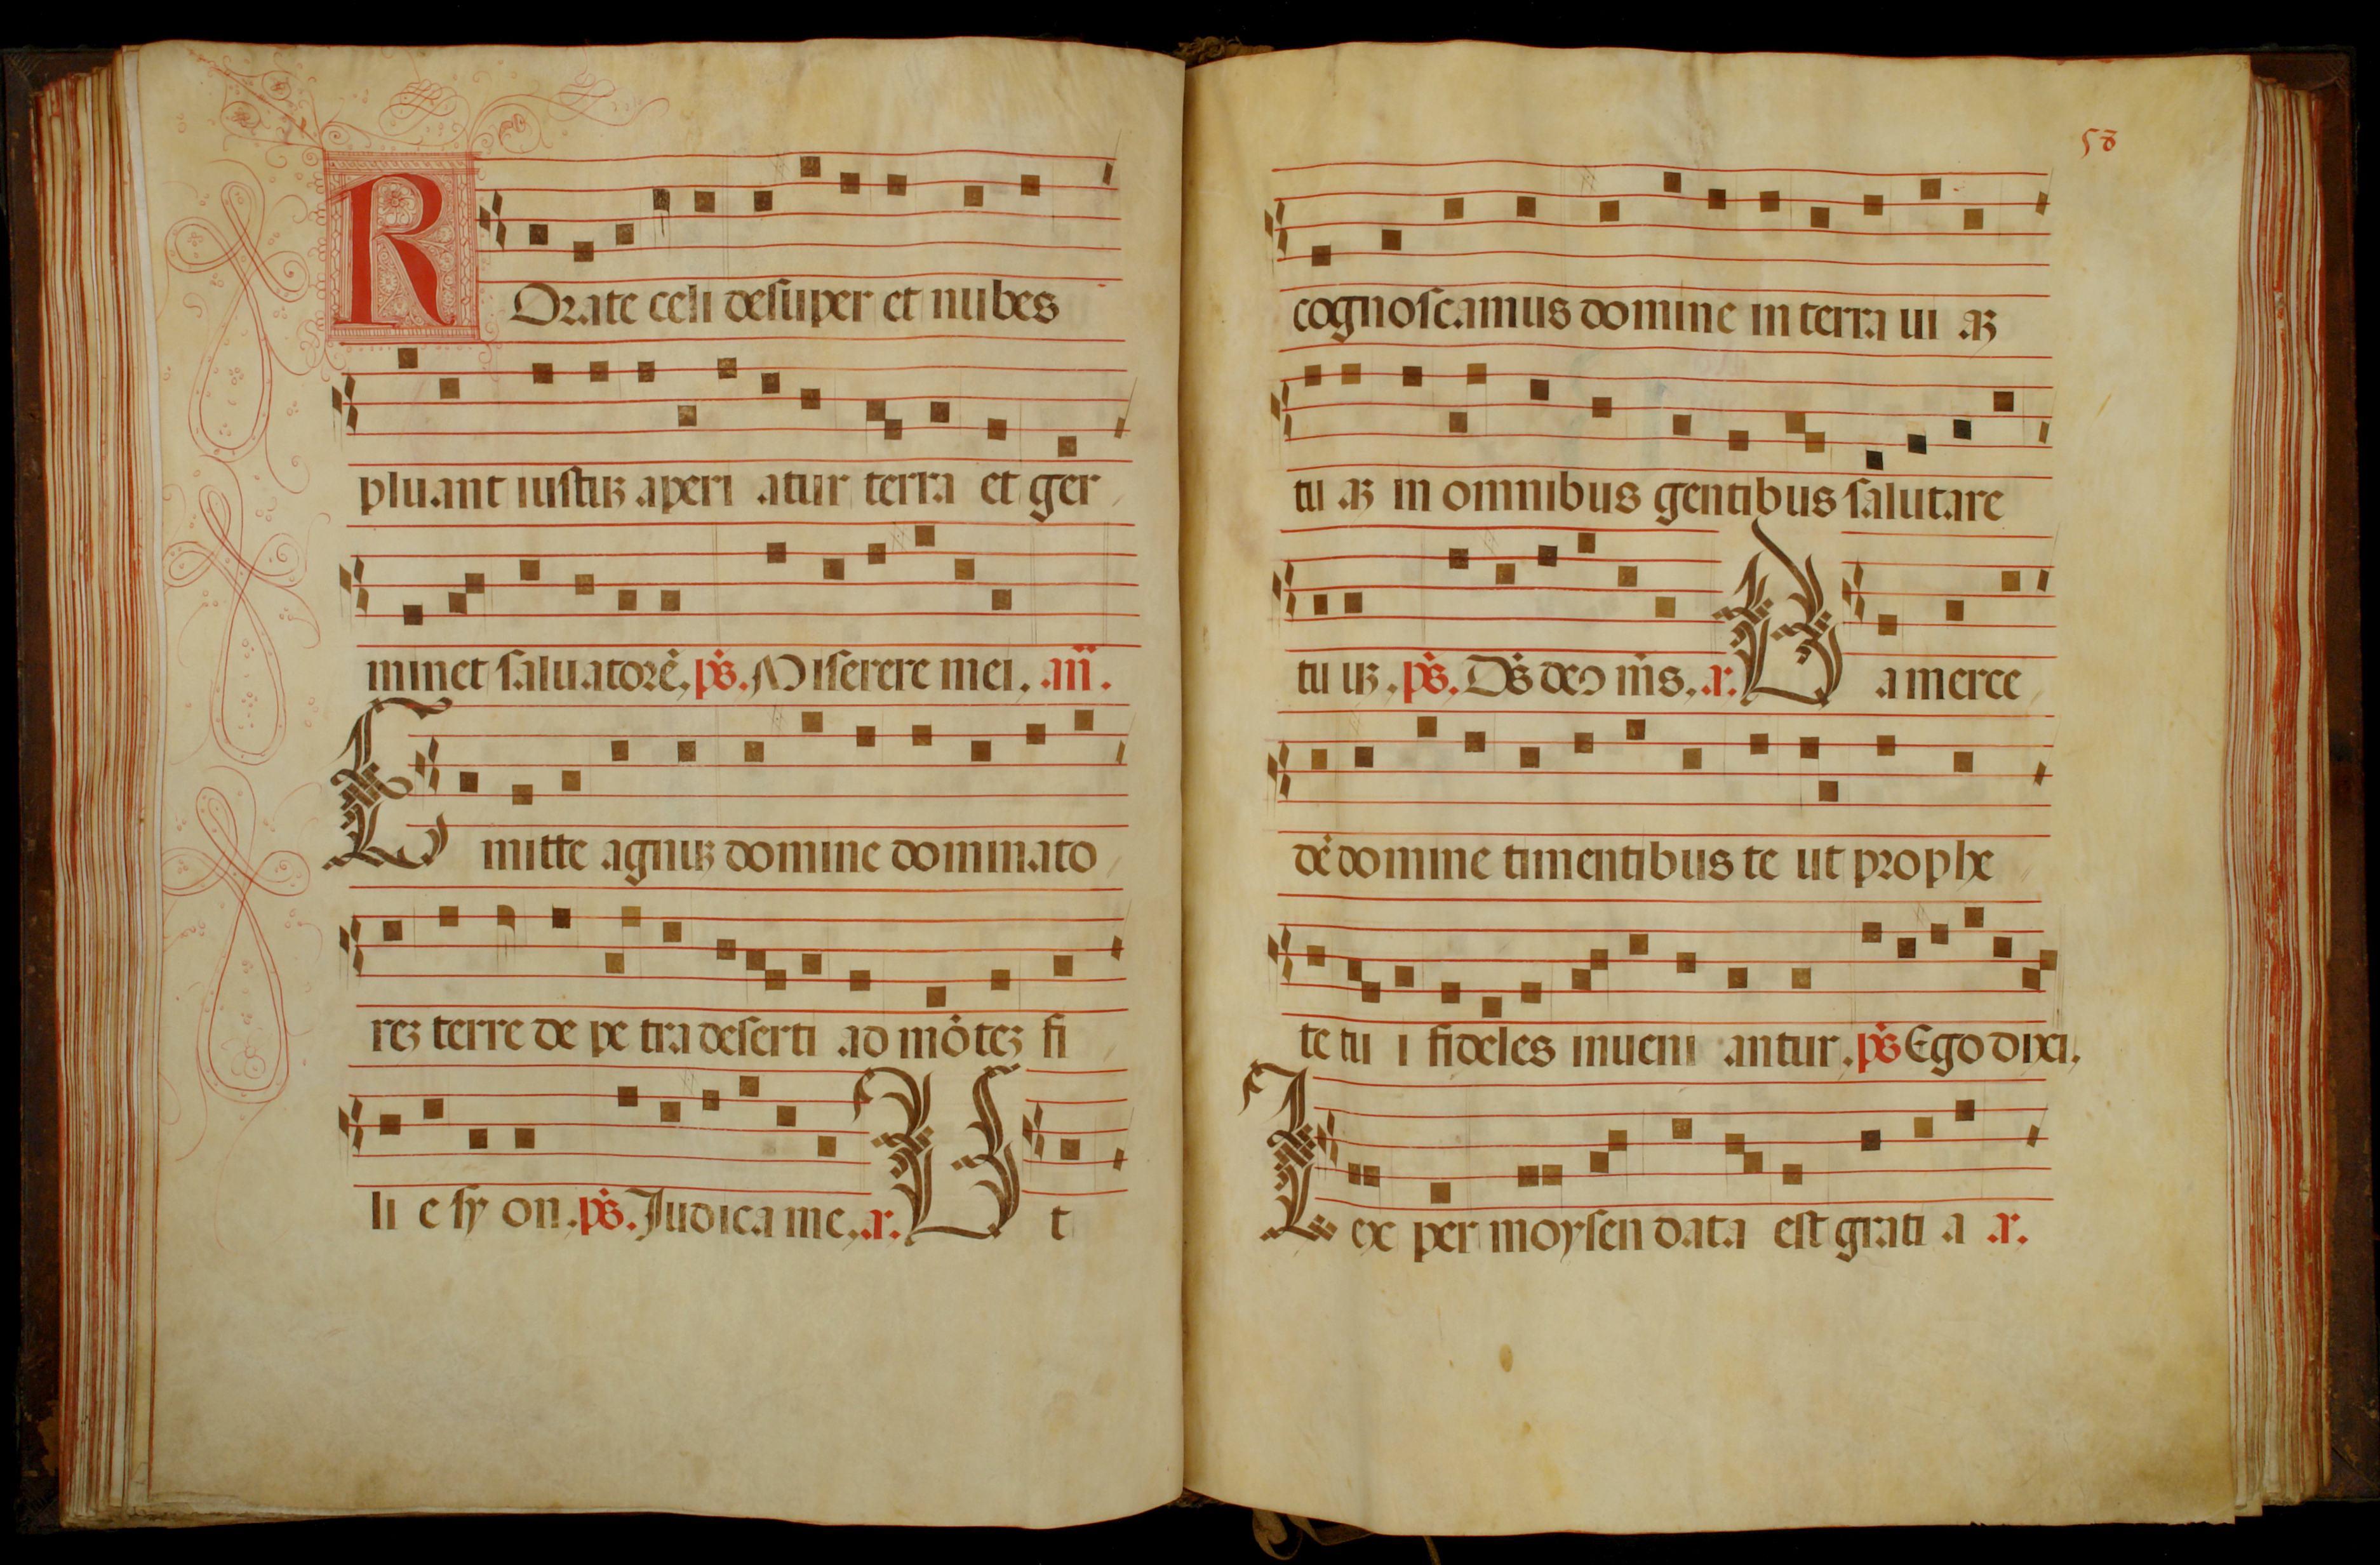 ROrate celi desuper et nubes
pluant iustuʒ aperi atur terra et ger
minet saluatorē. ps̄. Miserere mei. añ.
Emitte agnuʒ domine dominato
reʒ terre de pe tra deserti ad mōteʒ fi
li e sy on. ps̄. Judica me. a.
Ut
58
cognoscamus domine in terra ui aʒ
tu aʒ in omnibus gentibus salutare
tu uʒ. ps̄. Ds̄ deo nr̄s. a. Da merce
dē domine timentibus te ut prophe
te tu i fideles inueni antur. ps̄ Ego dixi.
Lex per moysen data est grati a a.